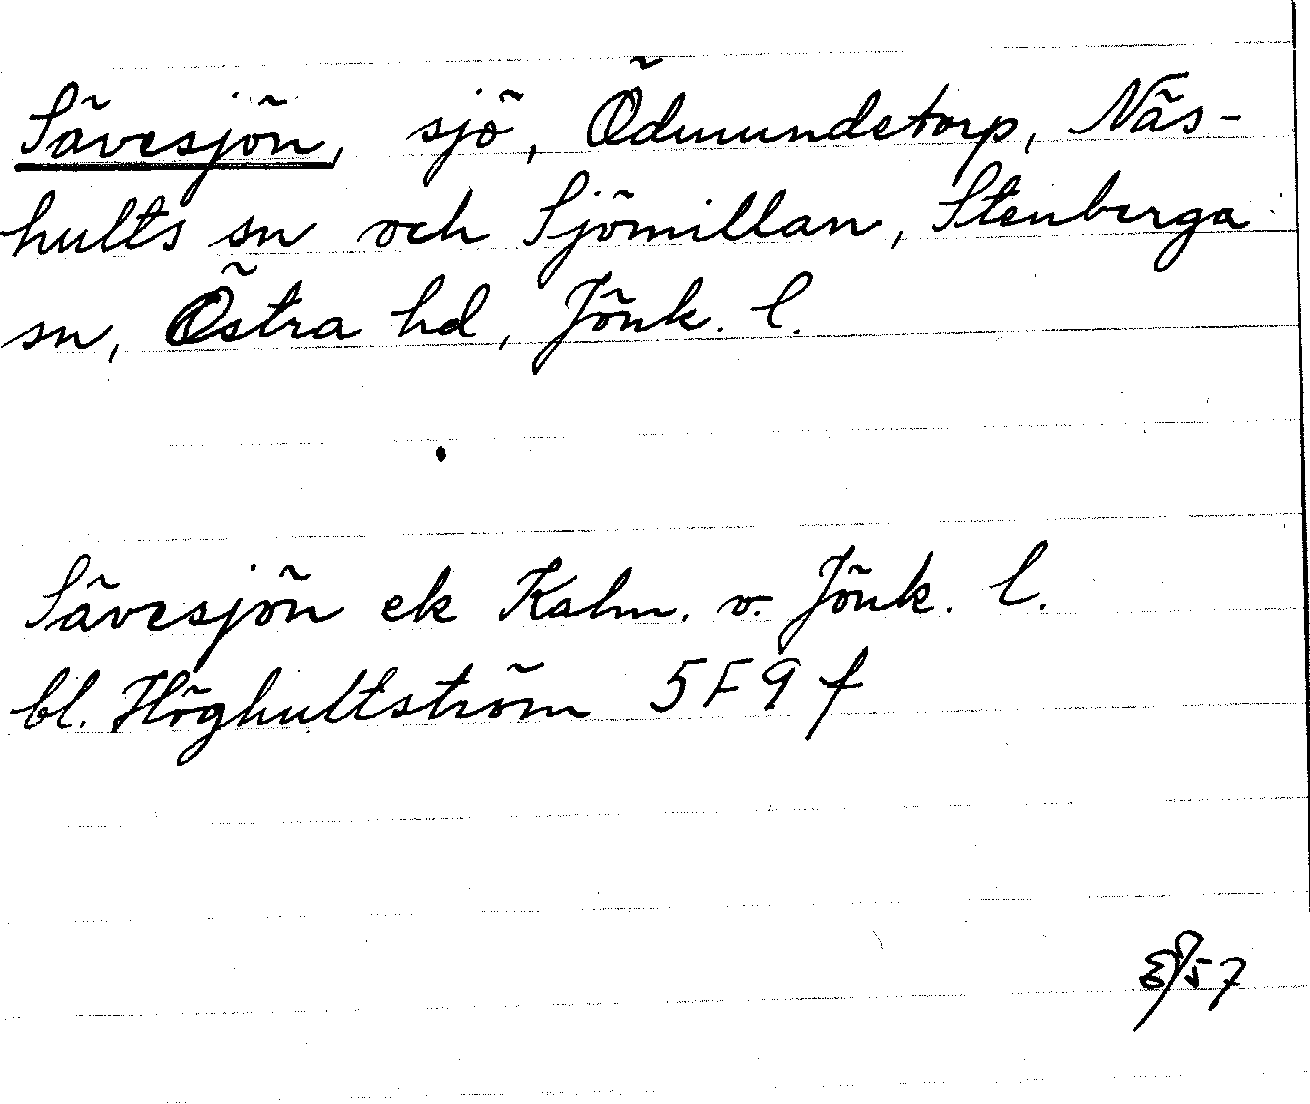 Sävesjön, sjö, Ödmundetorp, Näs-
hults sn och Sjömillan, Stenberga
sn, Östra hd, Jönk. l.
Sävesjön ek Kalm. o. Jönk. l.
bl. Höghultström 5F 9 f
57